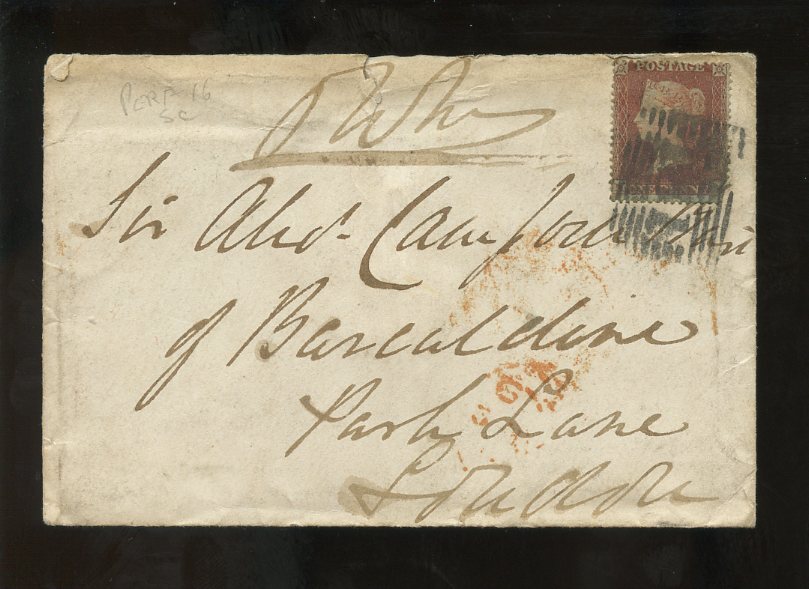 PERF 16
SC
POSTAGE
ONE PENNY
Sir Alexr. Campbell
of Barcaldine
Park Lane
London